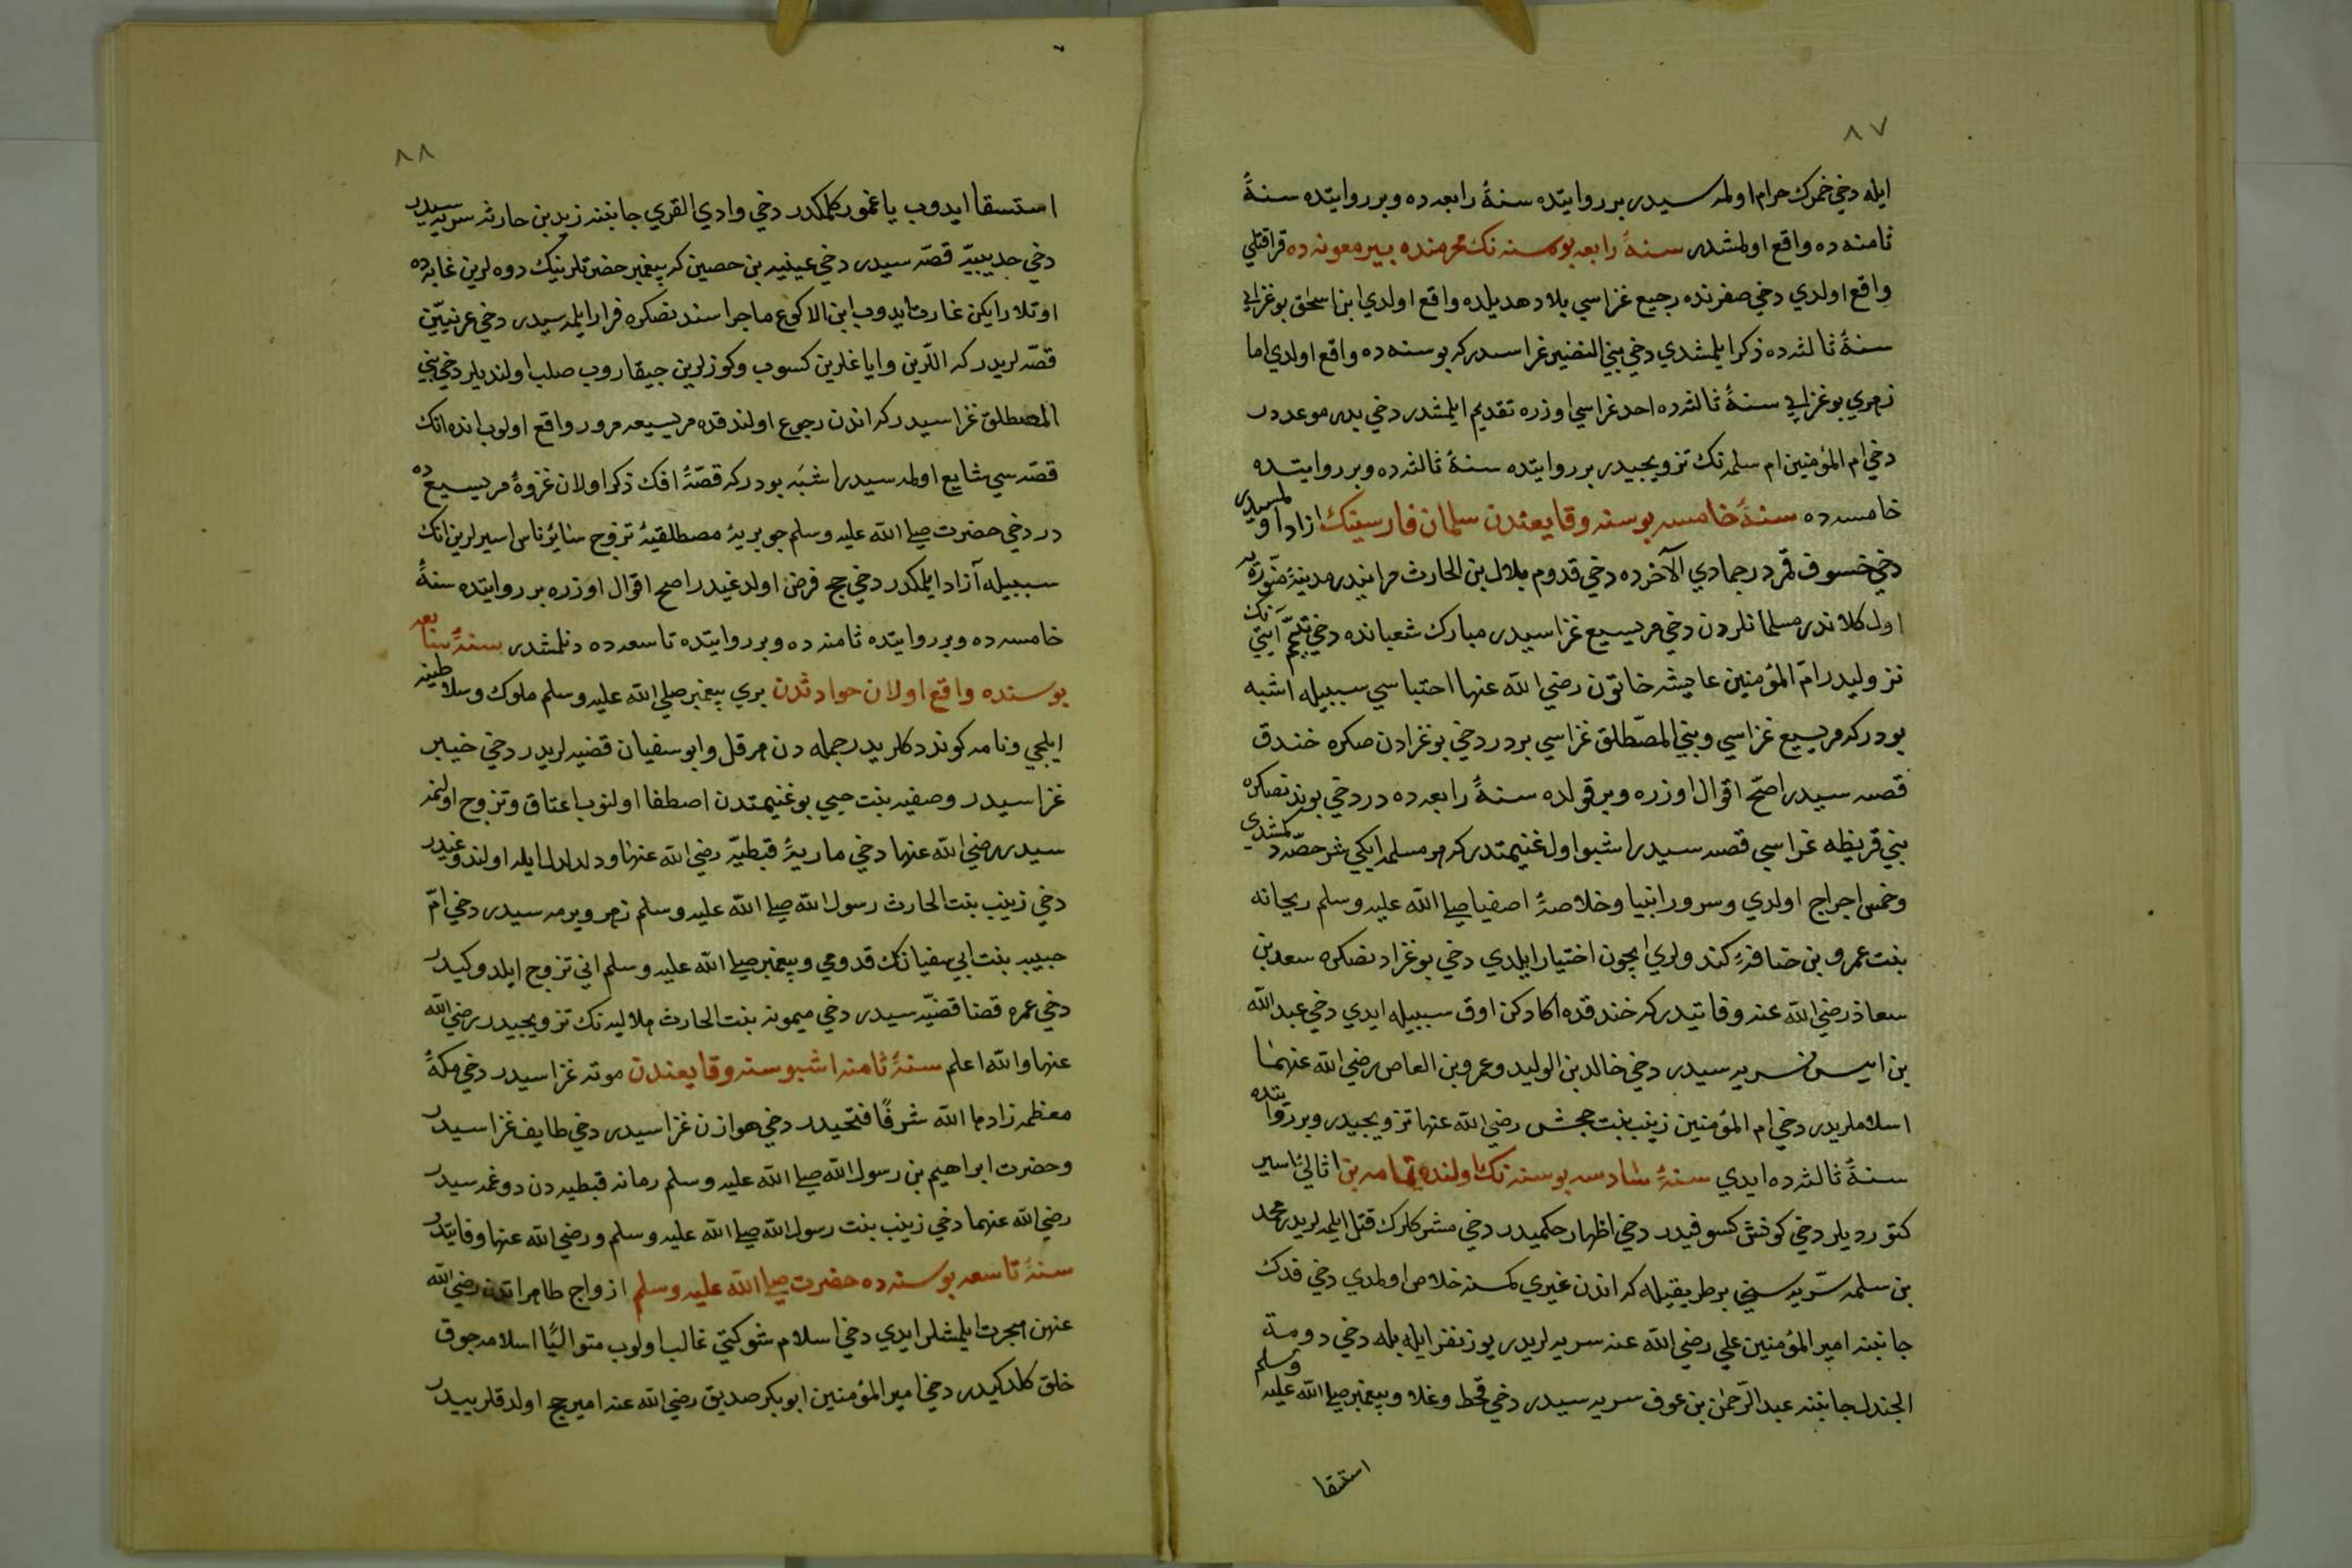 ٨٧
ايله دخي خمرك حرام اولمه سيدر بر روايتده سنۀ رابعه ده وبر روايتده سنۀ
ثامنه ده واقع اولمشدر سنۀ رابعه بو سنه نك محرمنده بير معونه ده قراقتلي
واقع اولدي دخي صفرنده رجيع غزاسي بلاد هديلده واقع اولدي ابن اسحق بو غزايي
سنۀ ثالثه ده ذكر ايلمشدي دخي بني النضير غزاسدر كه بو سنه ده واقع اولدي اما
زهري بو غزايي سنۀ ثالثه ده احد غزاسي اوزره تقديم ايلمشدر دخي بدر موعددر
دخي ام المؤمنين ام سلمه نك تزويجيدر بر روايتده سنۀ ثالثه ده وبر روايتده
خامسه ده سنۀ خامسه بو سنه وقايعندن سلمان فارسينك ازاد اولمسيدر
دخي خسوف قمردر جمادي الآخرده دخي قدوم بلال بن الحارث مزانيدر مدينۀ منوّره يه
اول كلاندر مسلمانلردن دخي مريسيع غزاسيدر مبارك شعبانده دخي تيمّم آيتي نك
نزوليدر امّ المؤمنين عايشه خاتون رضي الله عنها احتباسي سببيله اشبه
بودر كه مريسيع غزاسي وبني المصّطلق غزاسي بردر دخي بو غزادن صكره خندق
قصه سيدر اصحّ اقوال اوزره وبر قولده سنۀ رابعه ده در دخي بوندنصكره
بني قريظه غزاسي قصه سيدر اشبو اول غنيمتدر كه هر مسلمه ايكيشر حصّه دكمشدي
وخمس اجراج اولدي وسرور انبيا وخلاصۀ اصفيا صلي الله عليه وسلم ريحانه
بنت عمرو بن خنافۀ كندولري ايچون اختيار ايلدي دخي بو غزادنصكره سعد بن
معاذ رضي الله عنه وفاتيدر كه خندقده اكا دكن اوق سببيله ايدي دخي عبد الله
بن انيس سريه سيدر دخي خالد بن الوليد وعمرو بن العاص رضي الله عنهما
اسلاملريدر دخي ام المؤمنين زينب بنت جحش رضي الله عنها تزويجيدر وبر روايتده
سنۀ ثالثه ده ايدي سنۀ سادسه بو سنه نك اولنده ثمامه بن اثالي اسير
كتورديلر دخي كونش كسوفيدر دخي اظهار حكميدر دخي مشركلرك قتل ايلمه لريدر محمد
بن سلمه سرّيه سني بر طريقيله كه اندن غيري كمسنه خلاص اولمدي دخي فدك
جانبنه امير المؤمنين علي رضي الله عنه سريه لريدر يوز نفر ايله بله دخي دومة
الجندل جانبنه عبد الرّحمن بن عوف سريه سيدر دخي قحط وغلا وپيغمبر صلي الله عليه وسلم
استقا
٨٨
استسقا ايدوب ياغمور كلمكدر دخي وادي القري جانبنه زيد بن حارثه سريه سيدر
دخي حديبيّه قصّه سيدر دخي عيينه بن حصين كه پيغمبر حضرتلرينك دوه لرين غابه ده
اوتلار ايكن غارت ايدوب ابن الاكوع ماجراسندنصكره فرار ايلمه سيدر دخي عرنيّين
قصّه لريدر كه اللّرين واياغلرين كسوب وكوزلرين جيقاروب صلب اولنديلر دخي بني
المصطلق غزاسيدر كه اندن رجوع اولندقده مريسيعه مرور واقع اولوب انده افك
قصّه سي شايع اولمه سيدر اشبَه بودر كه قصّۀ افك ذكر اولان غزوۀ مريسيع ده
در دخي حضرت صلي الله عليه وسلم جويريۀ مصطلقيۀ تزوج سائر ناس اسيرلرين انك
سببيله آزاد ايلمكدر دخي حج فرض اولدغيدر اصح اقوال اوزره بر روايتده سنۀ
خامسه ده وبر روايتده ثامنه ده وبر روايتده تاسعه ده دنلمشدر سنۀ سابعه
بو سنه ده واقع اولان حوادثدن بري پيغمبر صلي الله عليه وسلم ملوك وسلاطينه
ايلجي ونامه كوندردكلريدر جمله دن هرقل وابو سفيان قضيه لريدر دخي خيبر
غزاسيدر وصفيه بنت حيي بو غنيمتدن اصطفا اولنوب اعتاق وتزوج اولنمه
سيدر رضي الله عنها دخي ماريۀ قبطيّه رضي الله عنها ودلدل ايله اولندوغيدر
دخي زينب بنت الحارث رسول الله صلي الله عليه وسلم زهر ويرمه سيدر دخي امّ
حبيبه بنت ابي سفيانك قدومي وپيغمبر صلي الله عليه وسلم اني تزوج ايلدوكيدر
دخي عمره قضا قضيّه سيدر دخي ميمونه بنت الحارث هلاليه نك تزويجيدر رضي الله
عنها والله اعلم سنۀ ثامنه اشبو سنه وقايعندن موته غزاسيدر دخي مكۀ
معظمه زادها الله شرفًا فتحيدر دخي هوازن غزاسيدر دخي طايف غزاسيدر
وحضرت ابراهيم بن رسول الله صلي الله عليه وسلم رمانه قبطيه دن دوغمه سيدر
رضي الله عنهما دخي زينب بنت رسول الله صلي الله عليه وسلم ورضي الله عنها وفاتيدر
سنۀ تاسعه بو سنه ده حضرت صلي الله عليه وسلم ازواج طاهراتدن رضي الله
عنهن هجرت ايلمشلر ايدي دخي اسلام شوكتي غالب اولوب متواليًا اسلامه جوق
خلق كلدكيدر دخي امير المؤمنين ابو بكر صديق رضي الله عنه امير حج اولدقلريدر